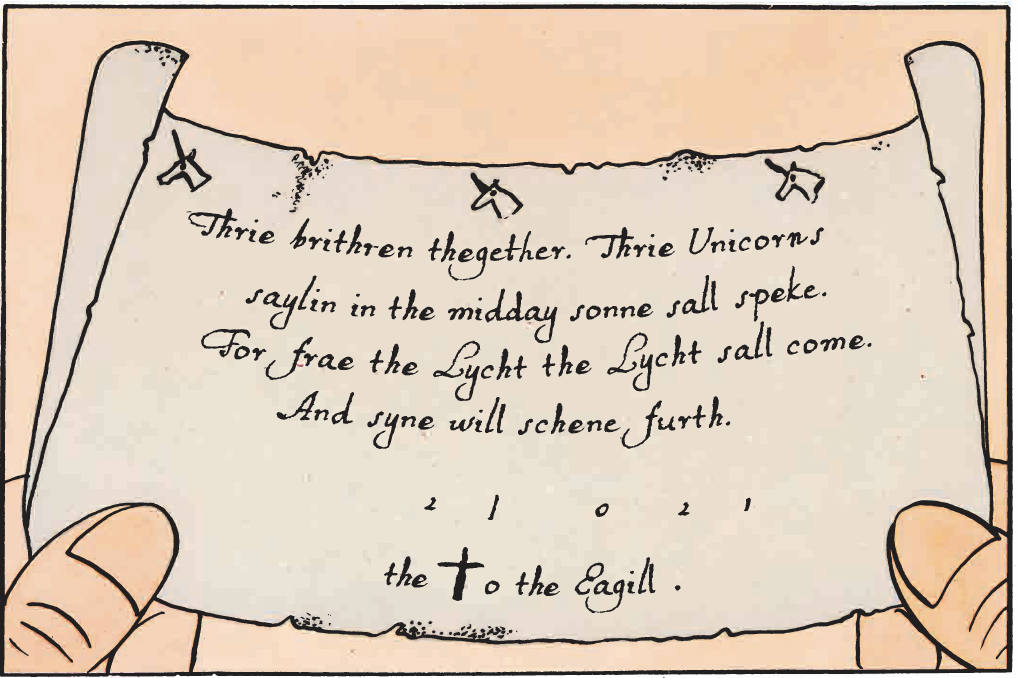 Thrie brithren thegether. Thrie Unicorns
saylin in the midday sonne sall speke.
For frae the Lycht the Lycht sall come.
And syne will schene furth.
2 1 0 2 1
the ✝o the Eagill .